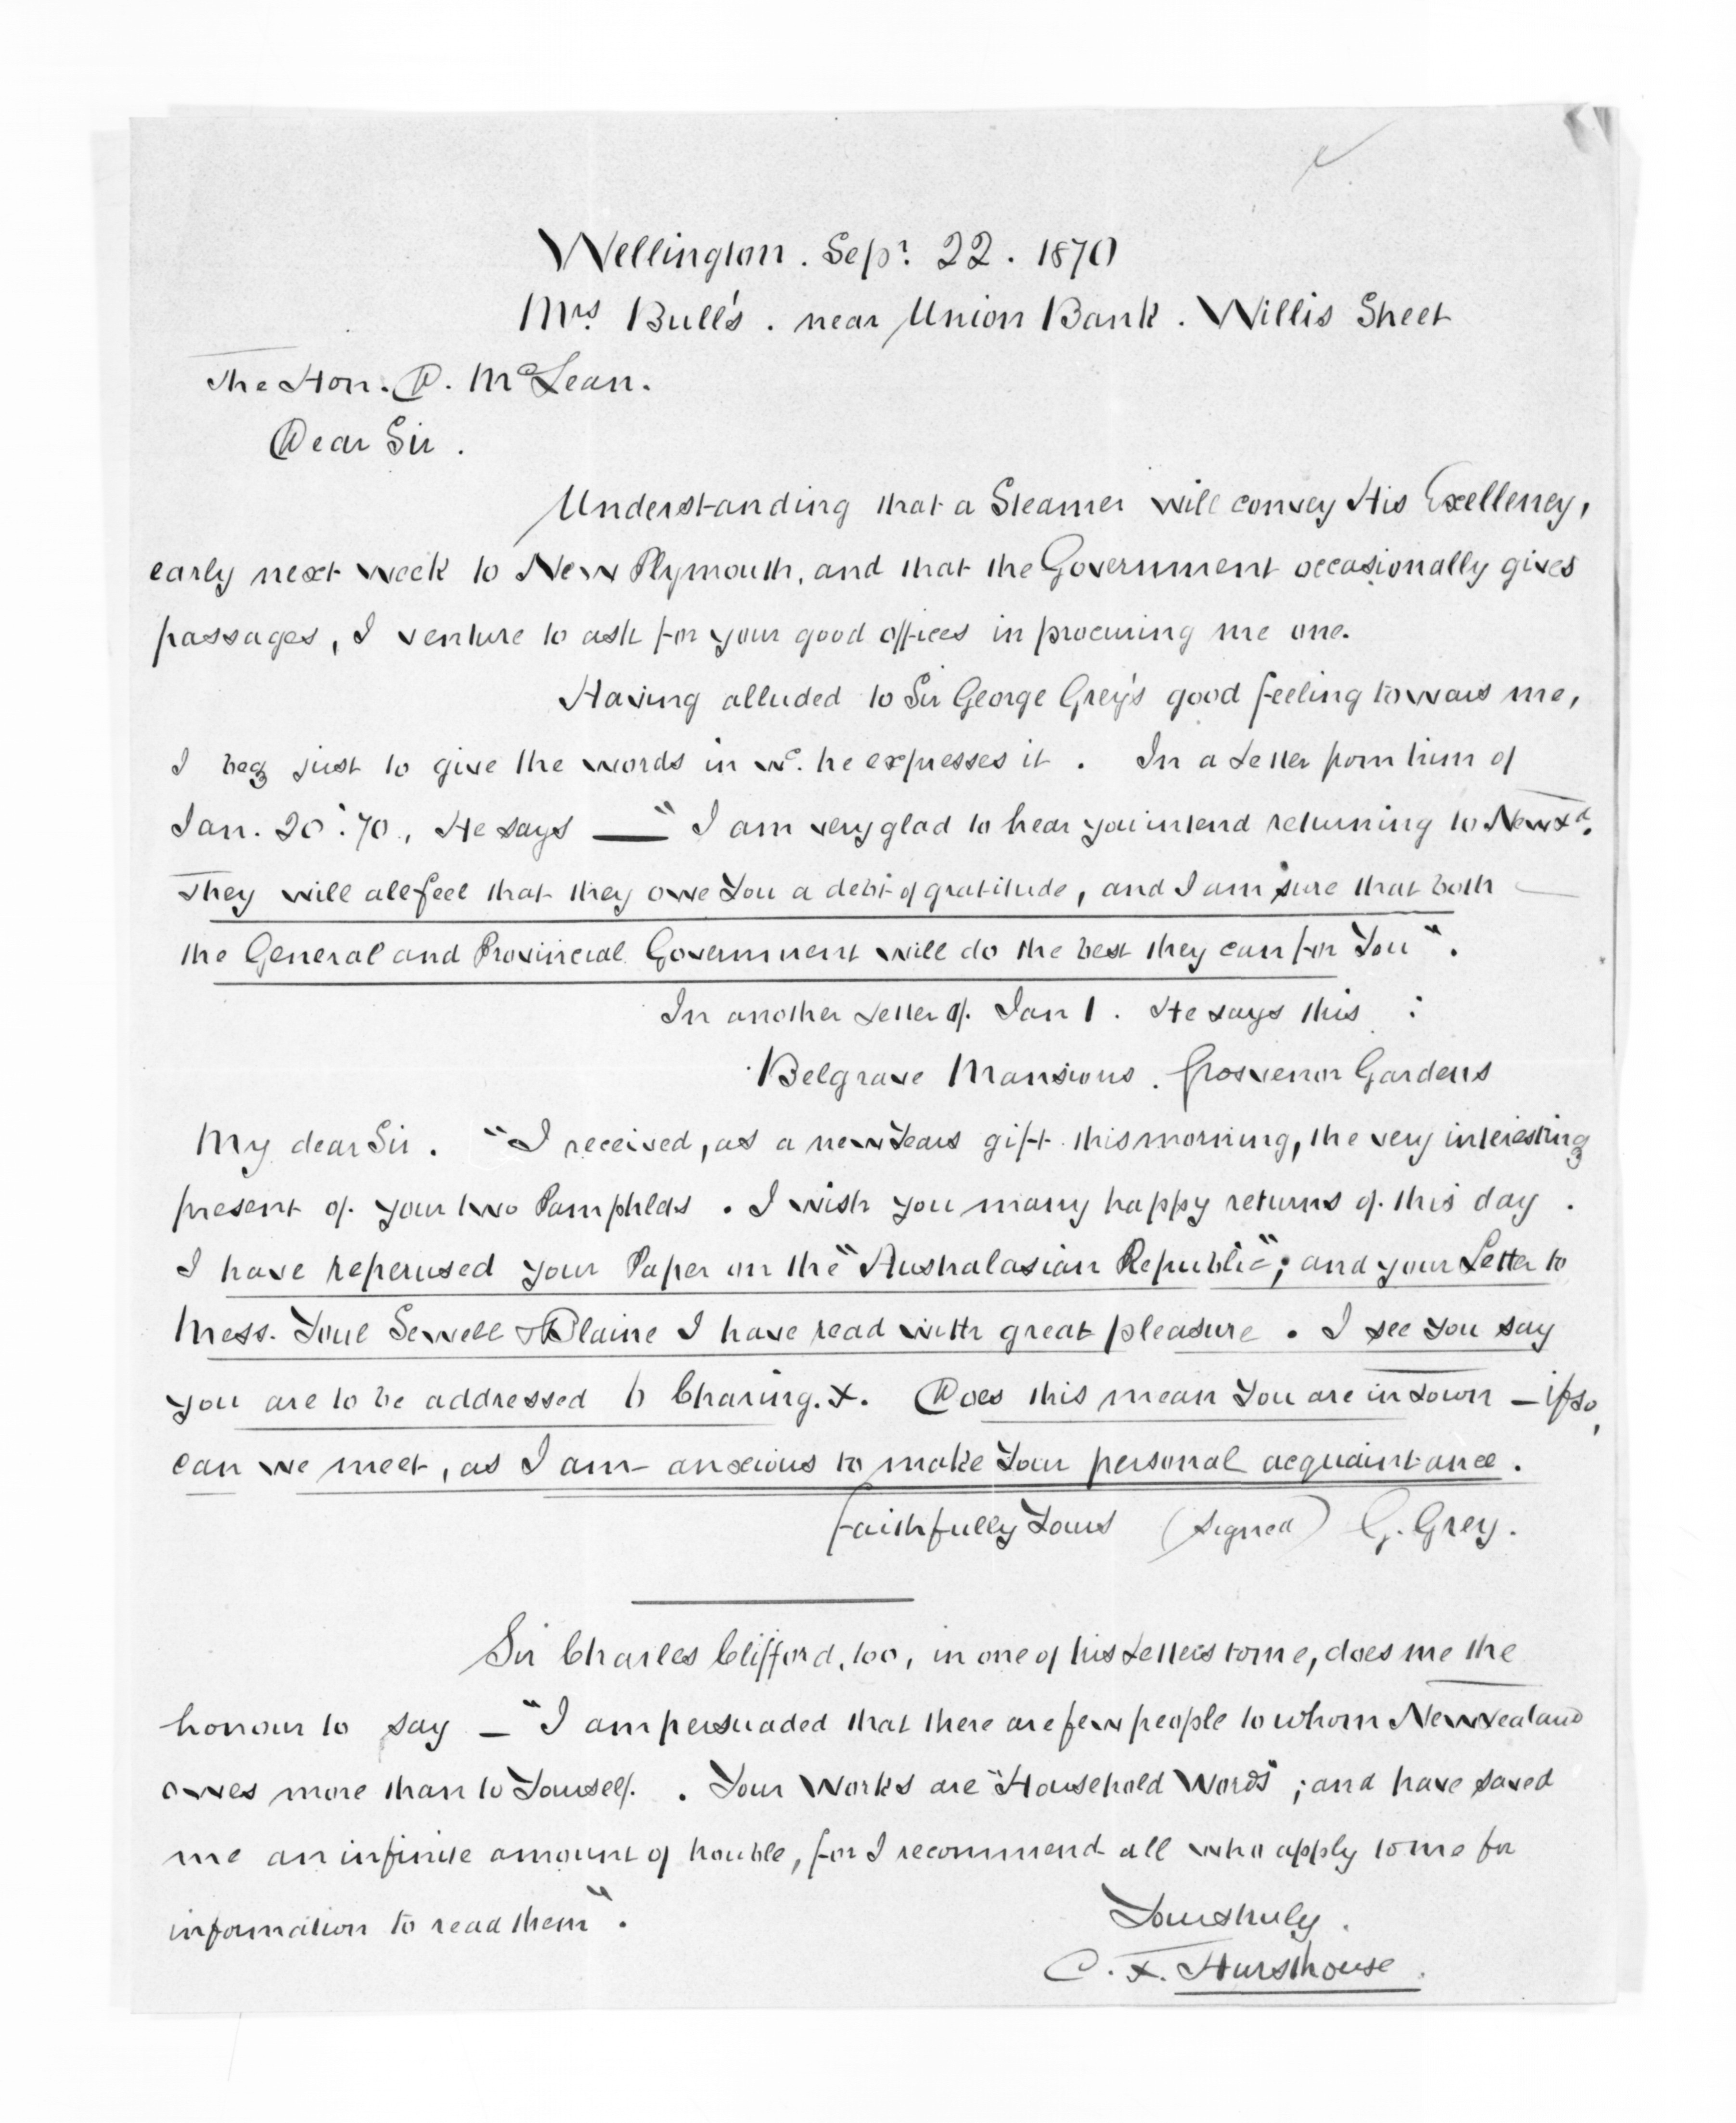 Wellington. Sepr. 22. 1870
Mrs. Bull's. near Union Bank. Willis Street
The Hon. D. McLean.
Dear Sir.
Understanding that a Steamer will convey His Exellency,
early next week to New Plymouth, and that the Government occasionally gives
passages, I venture to ask for your good offices in procuring me one.
Having alluded to Sir George Grey's good feeling towars me,
I beg just to give the words in wc. he expresses it. In a Letter from him of
Jan. 20: 70., He says — "I am very glad to hear you intend returning to New Zd.
They will all feel that they owe You a debt of gratitude, and I am sure that both
the General and Provincial Government will do the best they can for You".
In another Letter of. Jan 1. He says this :
Belgrave Mansions. Grosvenor Gardens
My dear Sir. "I received, as a new Years gift this morning, the very interesting
present of your two Pamphlets. I wish you many happy returns of this day.
I have reperused your Paper on the "Australasian Republic"; and your Letter to
Mess. Youl Sewell & Blaine I have read with great pleasure. I see You say
you are to be addressed 6 Charing. X. Does this mean You are in Town — if so,
can we meet, as I am anxious to make Your personal acquaintance.
Faithfully Yours (signed) G. Grey.
Sir Charles Clifford, too, in one of his Letters to me, does me the
honour to say — "I am persuaded that there are few people to whom New Zealand
owes more than to Yourself. Your Works are "Household Words"; and have saved
me an infinite amount of trouble, for I recommend all who apply to me for
information to read them".
Yours truly.
C. F. Hursthouse.